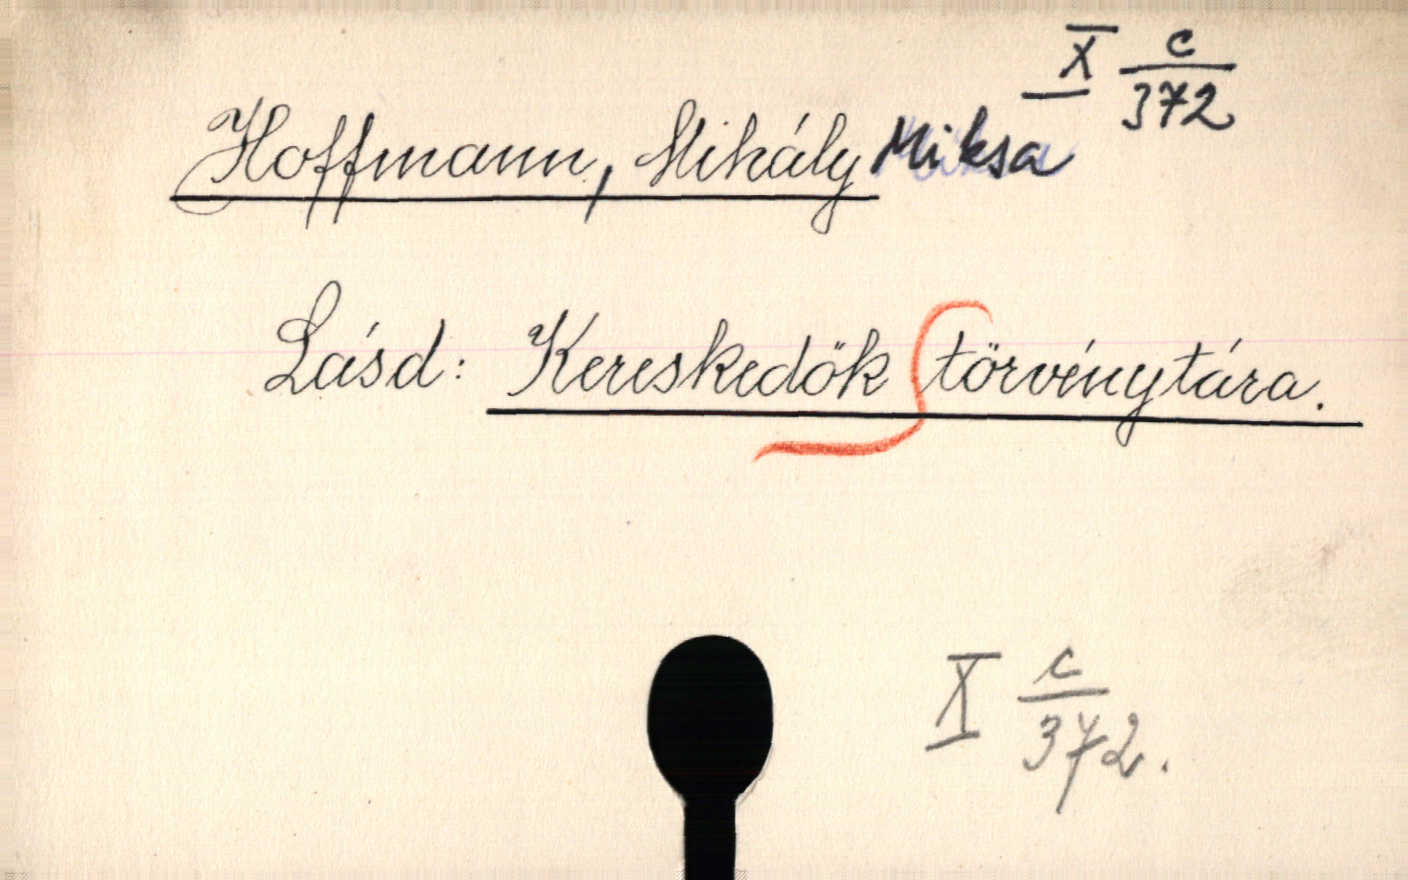 X c/372
Hoffmann, Mihály Miksa
Lásd: Kereskedők törvénytára.
X c/372.